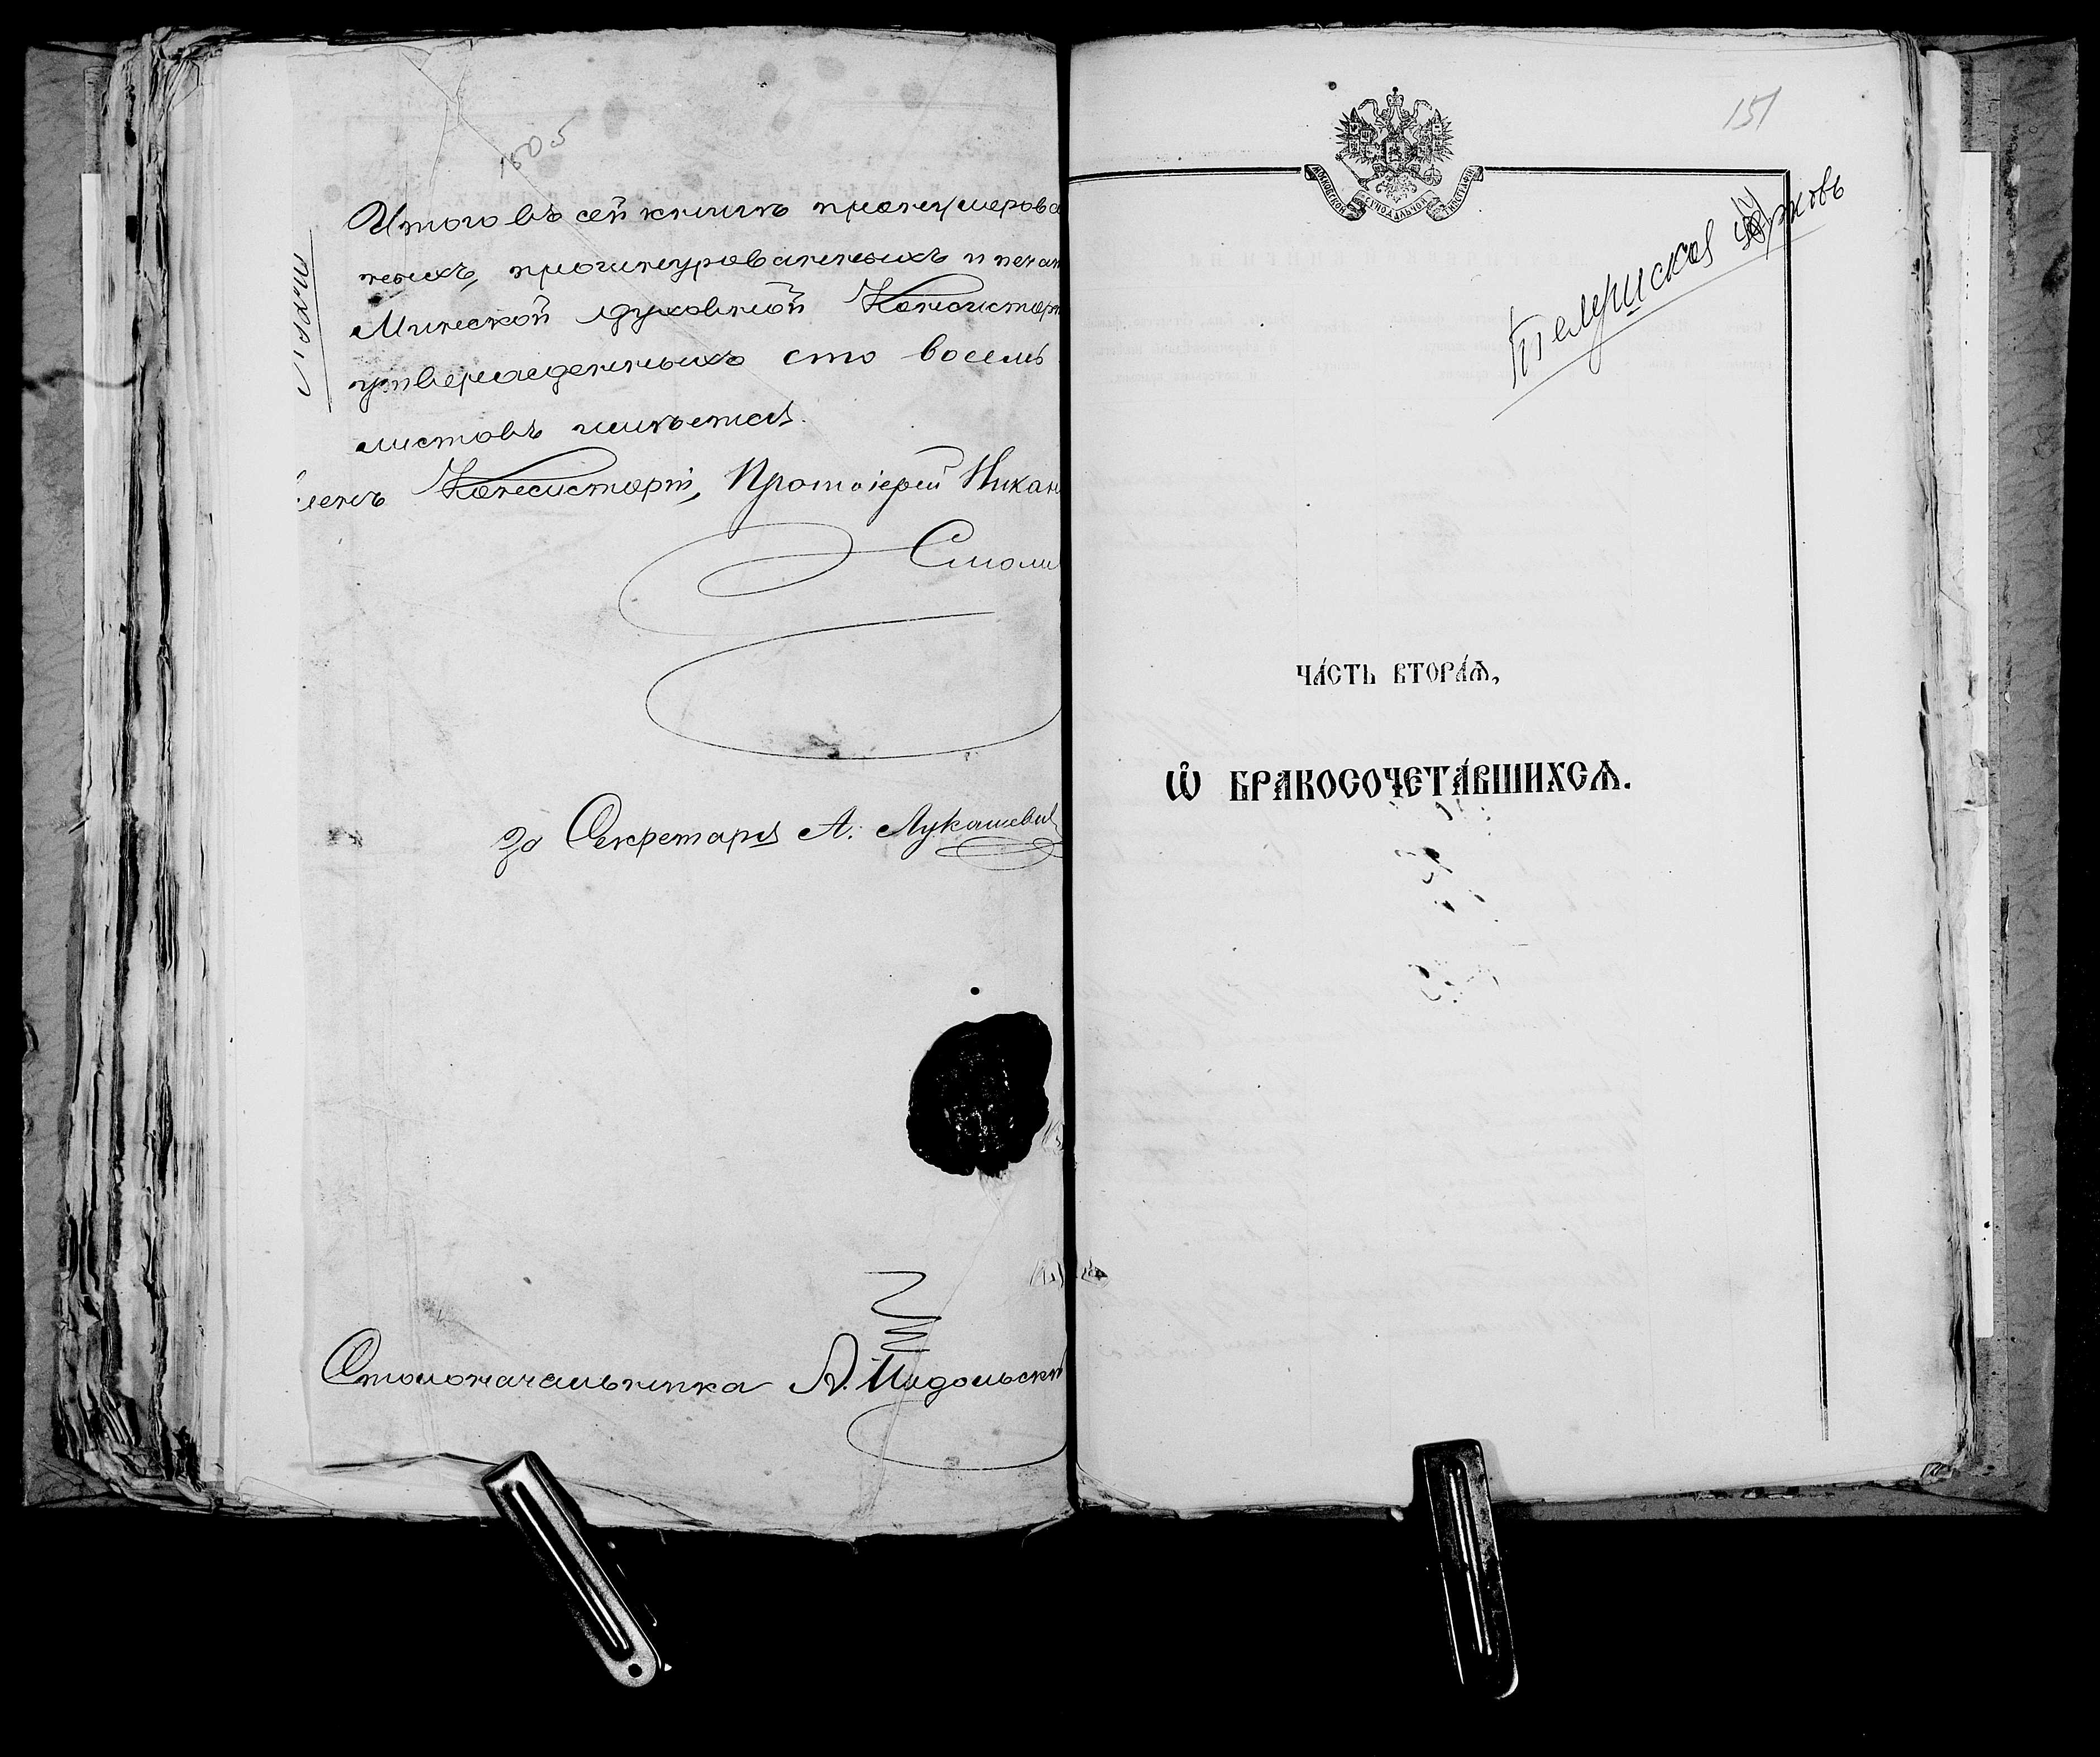 1505
Итого въ сей книгѣ пронумерова
ныхъ, прошнурованныхъ и печат
Минской духовной Консистор
утвержденныхъ сто восемь
листовъ имѣется.
Членъ Консисторіи, Протоіерей Никан
Смоли
За Секретаря А. Лукашевич
Столоначальника А. Подольскі
151
МОСКОВСКОЙ СѴНОДАЛЬНОЙ ТИПОГРАФІИ
Телушская Церковь
ЧА́СТЬ ВТОРА́Ѧ,
Ѡ҆ БРАКОСОЧЕТА́ВШИХСѦ.